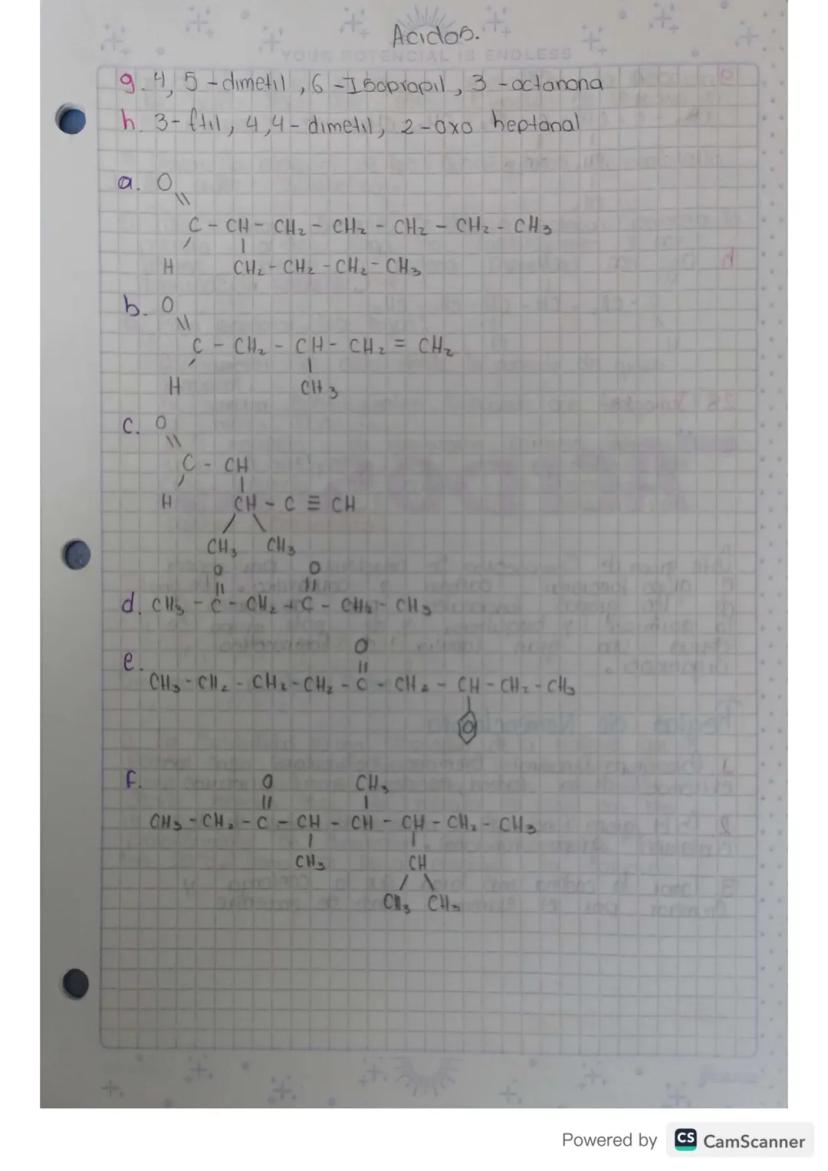 Acidos.
YOUR POTENCIAL IS ENDLESS
g. 4, 5-dimetil, 6-Isopropil, 3-octanona
h. 3-Etil, 4,4-dimetil, 2-oxo heptanal
a. O
\\
C - CH - CH₂ - CH₂ - CH₂ - CH₂ - CH₃
/ |
H CH₂ - CH₂ - CH₂ - CH₃
b. O
\\
C - CH₂ - CH - CH₂ = CH₂
/ |
H CH₃
c. O
\\
C - CH
/ |
H CH - C ≡ CH
/ \
CH₃ CH₃
O O
|| ||
d. CH₃ - C - CH₂ - C - CH₂ - CH₃
O
e. ||
CH₃ - CH₂ - CH₂ - CH₂ - C - CH₂ - CH - CH₂ - CH₃
|
f. O CH₃
|| |
CH₃ - CH₂ - C - CH - CH - CH - CH₂ - CH₃
| |
CH₃ CH
/ \
CH₃ CH₃
Powered by CS CamScanner